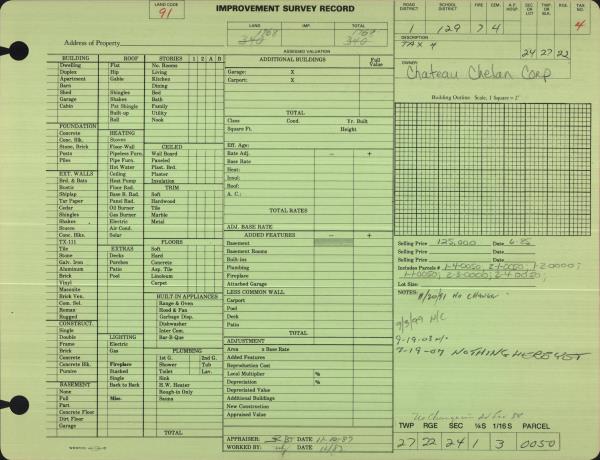 LAND CODE
91
IMPROVEMENT SURVEY RECORD
ROAD DISTRICT SCHOOL DISTRICT FIRE CEM. A.F. HOSP. TWP/SEC SUL RGE TAX NO.
1 129 7 4 4
LAND IMP.
1968 1968
340 340
Address of Property
DESCRIPTION
TAX 4 24 27 22
ASSESSED VALUATION
OWNER
Chateau Chelan Corp
Building Outline Scale, 1 Square = 2'
BUILDING STORIES 1 2 A B
Dwelling Flat No. Rooms
Duplex Hip Living
Apartment Gable Kitchen
Barn Dining
Shed Shingles Bed
Garage Shakes Bath
Cabin Pat Shingle Family
Built-up Utility
Roll Nook
FOUNDATION
Concrete HEATING
Conc. Blk. Stoves
Stone, Brick Floor-Wall CEILED
Posts Pipeless Furn. Wall Board
Piles Pipe Furn. Paneled
Hot Water Plast. Brd.
EXT. WALLS Ceiling Plaster
Brd. & Bats Heat Pump Insulation
Rustic Floor Rad. TRIM
Shiplap Base B. Rad. Soft
Tar Paper Panel Rad. Hardwood
Cedar Oil Burner Tile
Shingles Gas Burner Marble
Shakes Electric Metal
Stucco Air Cond.
Conc. Blks. Solar FLOORS
TX-111 Soft
Tile EXTRAS Hard
Stone Decks Concrete
Galv. Iron Porches Asp. Tile
Aluminum Patio Linoleum
Brick Pool Carpet
Vinyl
Masonite
Brick Ven. BUILT-IN APPLIANCES
Com. Sel. Range & Oven
Roman Hood & Fan
Rugged Garbage Disp.
CONSTRUCT. Dishwasher
Single Inter Com.
Double LIGHTING Bar-B-Que
Frame Electric
Brick Gas PLUMBING
Concrete 1st G. 2nd G.
Concrete Blk. Fireplace Shower Tub
Pumice Stacked Toilet Lav.
Single Sink
BASEMENT Back to Back H.W. Heater
None Rough-in Only
Full Misc. Sauna
Part
Concrete Floor
Dirt Floor
Garage
TOTAL
ADDITIONAL BUILDINGS Full Value
Garage: X
Carport: X
TOTAL
Class Cond. Yr. Built
Square Ft. Height
Eff. Age:
Rate Adj. – +
Base Rate
Heat:
Insul:
Roof:
A. C.:
TOTAL RATES
ADJ. BASE RATE
ADDED FEATURES – +
Basement
Basement Rooms
Built-ins
Plumbing
Fireplace
Attached Garage
LESS COMMON WALL
Carport
Pool
Deck
Patio
TOTAL
ADJUSTMENT
Area x Base Rate
Added Features
Reproduction Cost
Local Multiplier %
Depreciation %
Depreciated Value
Additional Buildings
New Construction
Appraised Value
APPRAISER: DATE 11-10-87
WORKED BY: DATE 11/87
Selling Price 125,000 Date 6-82
Selling Price Date
Selling Price Date
Includes Parcels # 1-4-0050, 2-1-0050, 1-2-0000;
1-1-0050, 2-3-0000, 2-4-0050;
NOTES: 11/20/91 No change
9/3/99 N/C
9-19-03
7-19-07 NOTHING HERE YET
TWP RGE SEC ¼S 1/16S PARCEL
27 22 24 1 3 0050